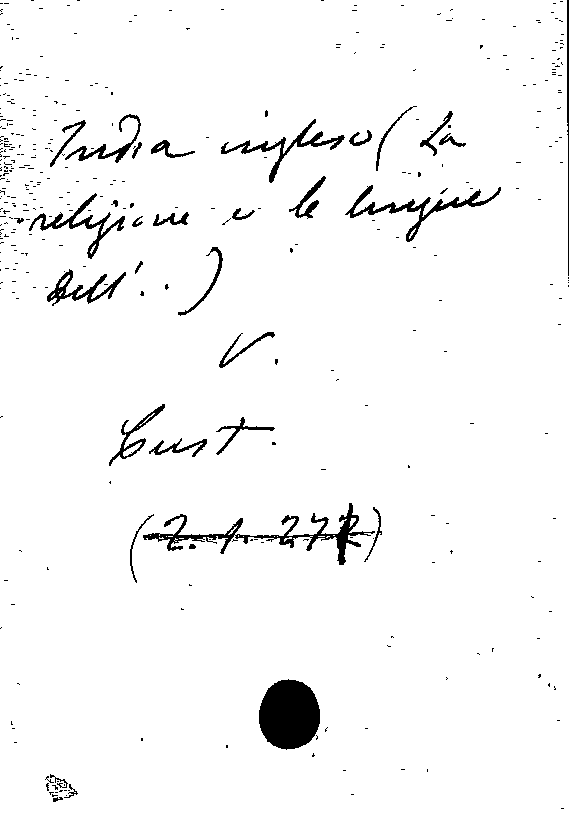 India inglese (La
religione e le lingue
dell'..)
V.
Cust.
(2. 1. 27